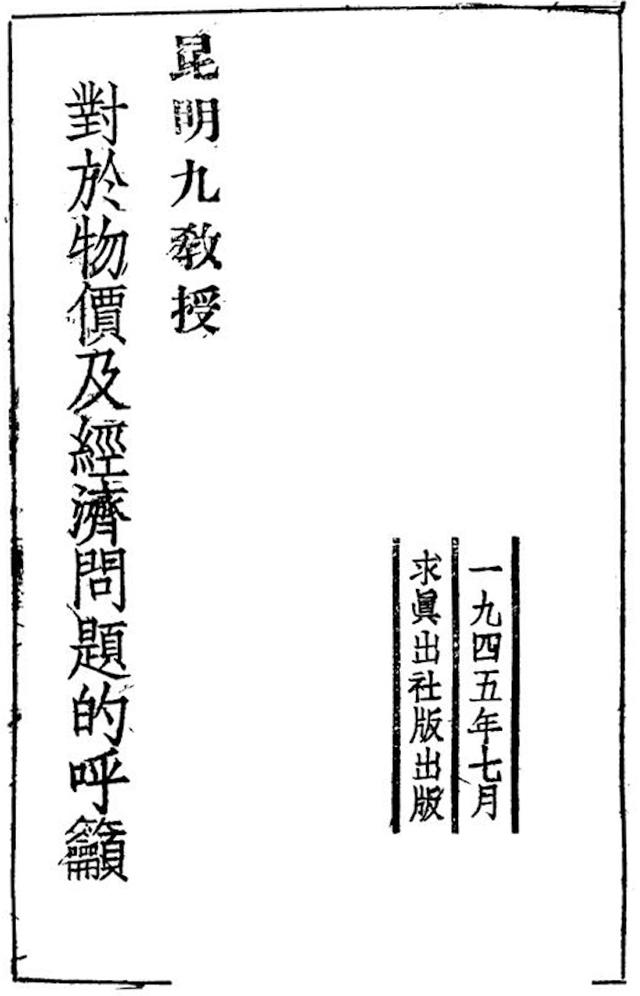 一九四五年七月
求眞出社版出版
昆明九教授
對於物價及經濟問題的呼籲